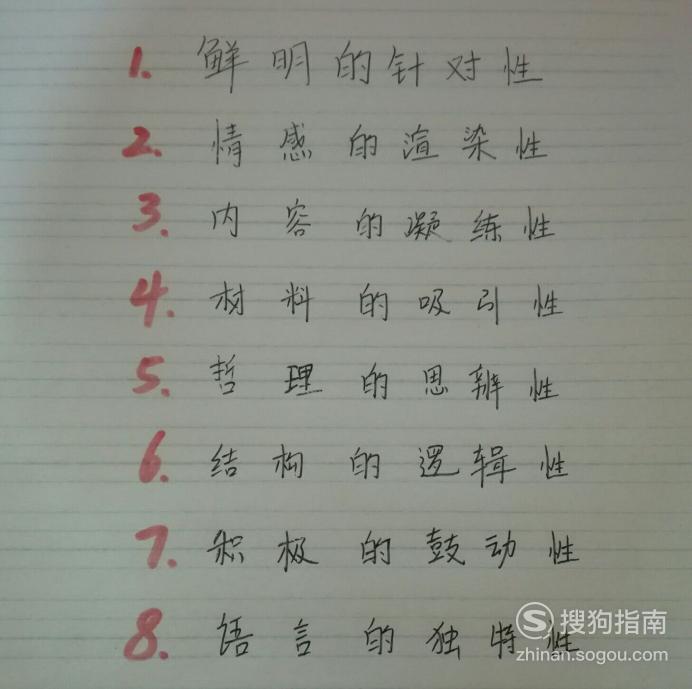 1. 鲜明的针对性
2. 情感的渲染性
3. 内容的凝练性
4. 材料的吸引性
5. 哲理的思辨性
6. 结构的逻辑性
7. 积极的鼓动性
8. 语言的独特性
搜狗指南
zhinan.sogou.com